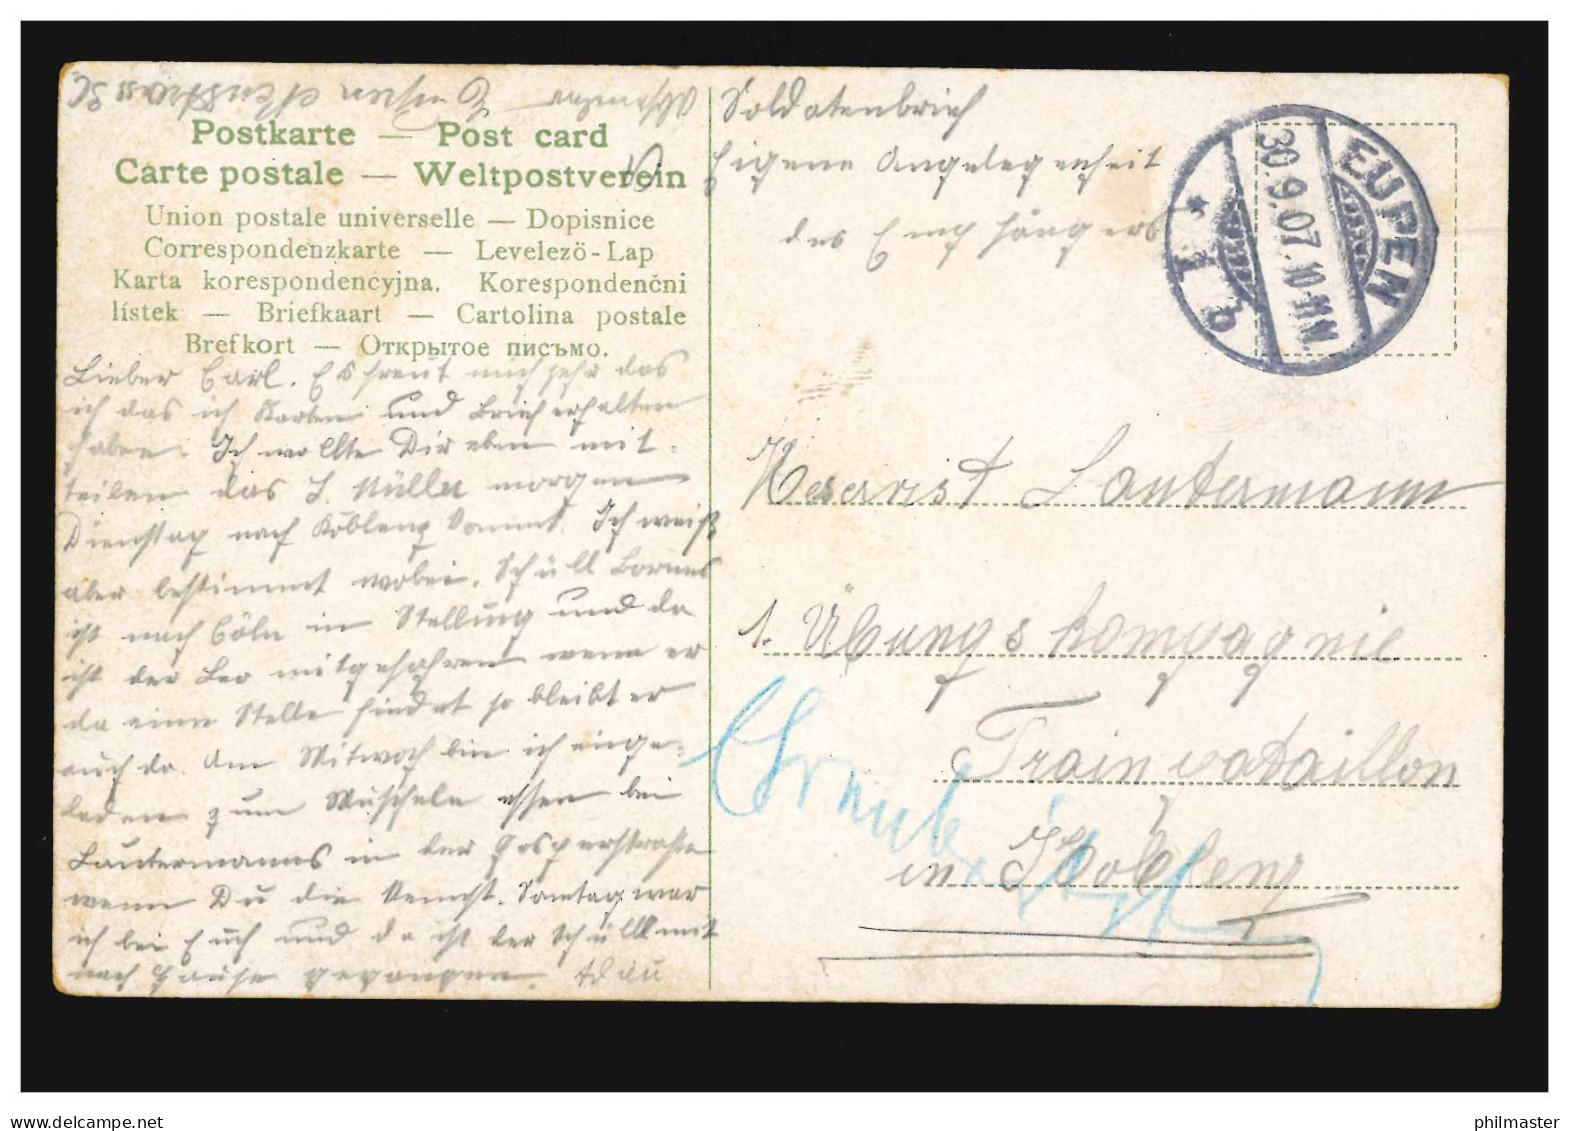 Eupen
Postkarte — Post card
Carte postale — Weltpostverein
Union postale universelle — Dopisnice
Correspondenzkarte — Levelező-Lap
Karta korespondencyjna. Korespondenční
lístek — Briefkaart — Cartolina postale
Brefkort — Открытое письмо.
Lieber Carl. Es freut mich sehr das
ich das ich Karten und Brief erhalten
haben. Ich wollte Dir eben mit-
teilen das J. Müller morgen
Dienstag nach Koblenz kommt. Ich weiß
aber bestimmt wobei. Schüll
ist nach Cöln in Stellung und da
ist der Leo mitgefahren wenn er
da eine Stelle findet so bleibt er
auch da. Am Mitwoch bin ich einge-
laden zum Muscheln essen bei
Lautermanns in der Gosperstraße
wenn Du die kennst. Sontag war
ich bei Euch und da ist der Schüll mit
nach Hause gegangen. Adieu
Soldatenbrief
Eigene Angelegenheit
des Empfängers
EUPEN
30.9.07. 10-11N.
* 1 b
Reservist Lautermann
1. Übungskompagnie
Trainbataillon
in Koblenz
philmaster